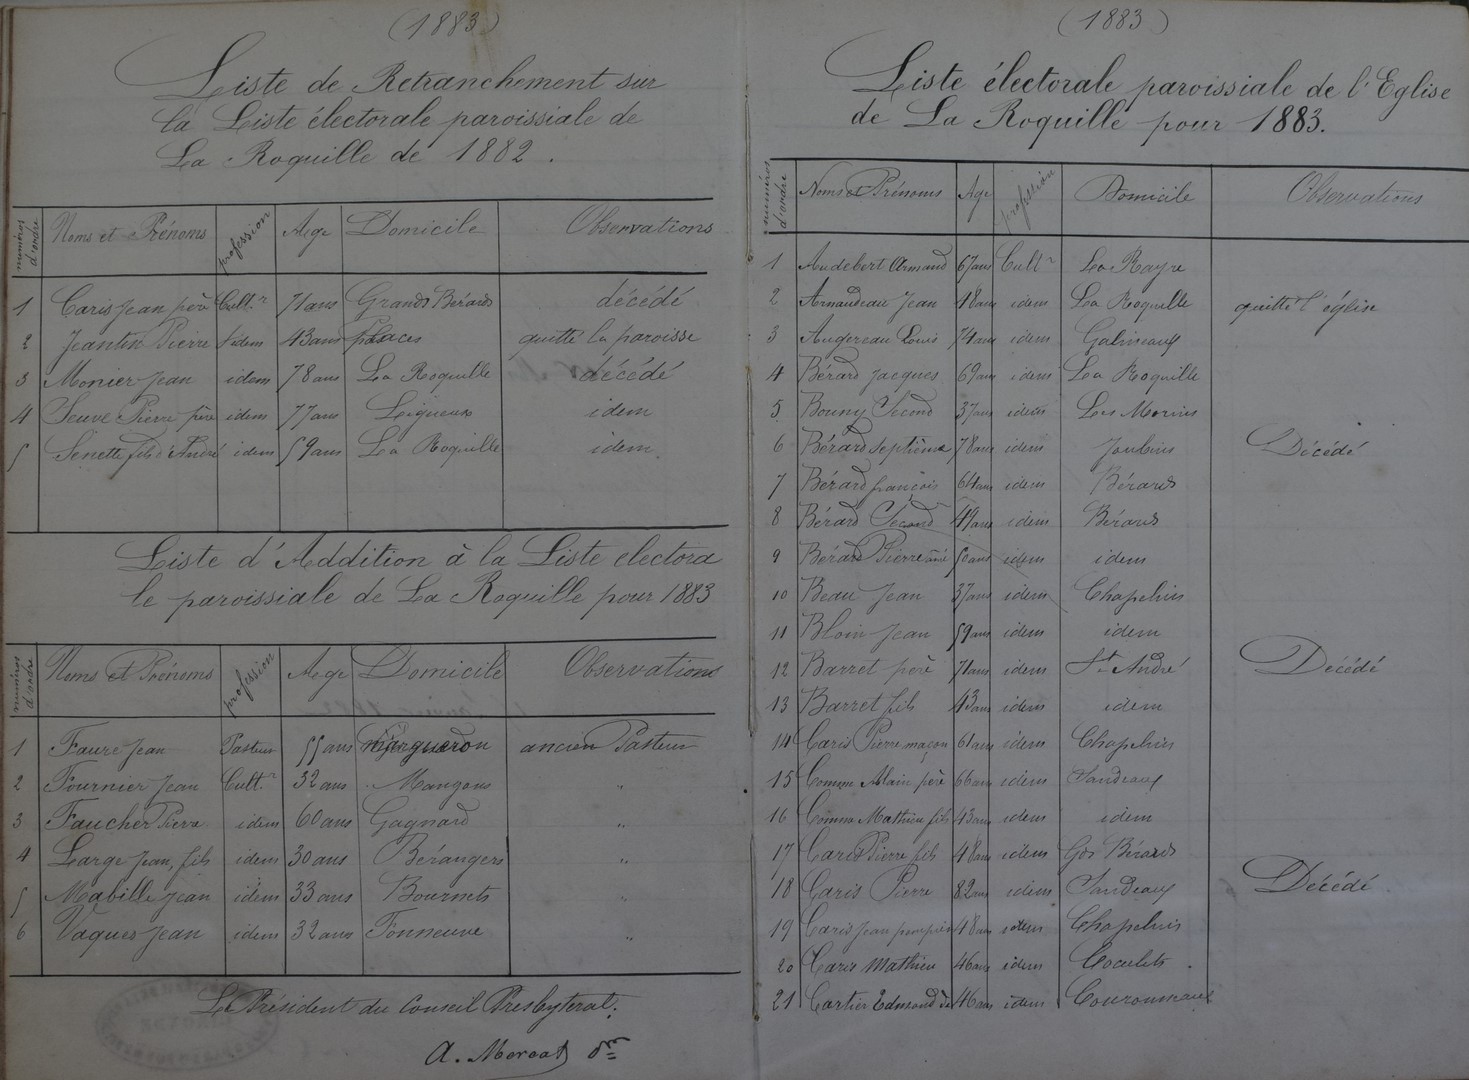 (1883)
Liste de Retranchement sur
la Liste électorale paroissiale de
La Roquille de 1882.
numéros d'ordre Noms et Prénoms profession Age Domicile Observations
1 Caris Jean père Cultr 71 ans Grands Bérards décédé
2 Jeantin Pierre idem 43 ans places quitte la paroisse
3 Monier Jean idem 78 ans La Roquille décédé
4 Seuve Pierre père idem 77 ans Ligueux idem
5 Senette fils d'André idem 59 ans La Roquille idem
Liste d'Addition à la Liste electora
le paroissiale de La Roquille pour 1883
numéros d'ordre Noms et Prénoms profession Age Domicile Observations
1 Faure Jean Pasteur 55 ans Margueron ancien Pasteur
2 Fournier Jean Cultr 32 ans Mangons "
3 Faucher Pierre idem 60 ans Gagnard "
4 Large Jean, fils idem 30 ans Bérangers "
5 Mabille Jean idem 33 ans Bournets "
6 Vaques Jean idem 32 ans Fonneuve "
Le Président du Conseil Presbyteral.
A. Mercat
(1883)
Liste électorale paroissiale de l'Eglise
de La Roquille pour 1883.
numéros d'ordre Noms et Prénoms Age profession Domicile Observations
1 Audebert Armand 67 ans Cultr La Rayre
2 Arnaudeau Jean 48 ans idem La Roquille quitte l'église
3 Augereau Louis 74 ans idem Galineaux
4 Bérard Jacques 69 ans idem La Roquille
5 Bouny Second 37 ans idem Les Morins
6 Bérard Septième 78 ans idem Joubins Décédé
7 Bérard françois 64 ans idem Bérards
8 Bérard Second 49 ans idem Bérards
9 Bérard Pierre ainé 50 ans idem idem
10 Beau Jean 37 ans idem Chapelins
11 Bloin Jean 59 ans idem idem
12 Barret père 71 ans idem St André Décédé
13 Barret fils 43 ans idem idem
14 Caris Pierre maçon 61 ans idem Chapelins
15 Comme Alain père 66 ans idem Jandeaux
16 Comme Mathieu fils 43 ans idem idem
17 Caris Pierre fils 48 ans idem Gds Bérards
18 Caris Pierre 82 ans idem Jandeaux Décédé
19 Caris Jean 48 ans idem Chapelins
20 Caris Mathieu 46 ans idem Coculets
21 Cartier Edmond 46 ans idem Couronneaux